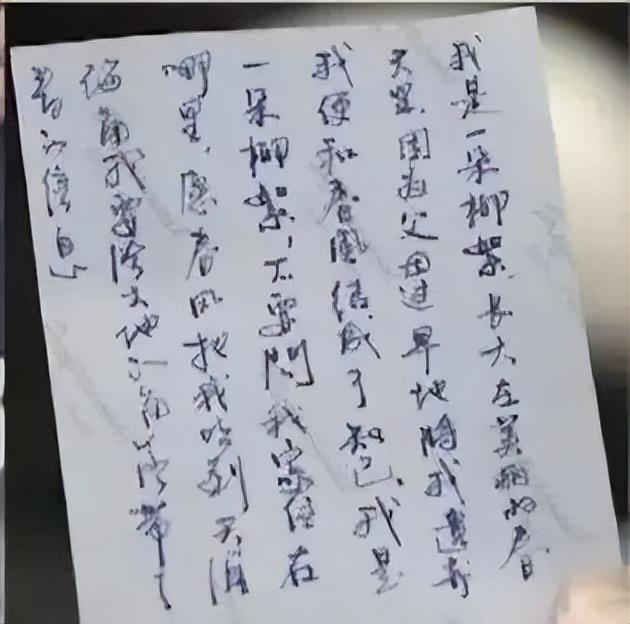 我是一朵柳絮,长大在美丽的春
天里,因为父母过早地将我遗弃
我便和春風结成了知己,我是
一朵柳絮,不要問我家住在
哪里,愿春风把我吹到天涯
海角我要给大地的角落带
春的信息